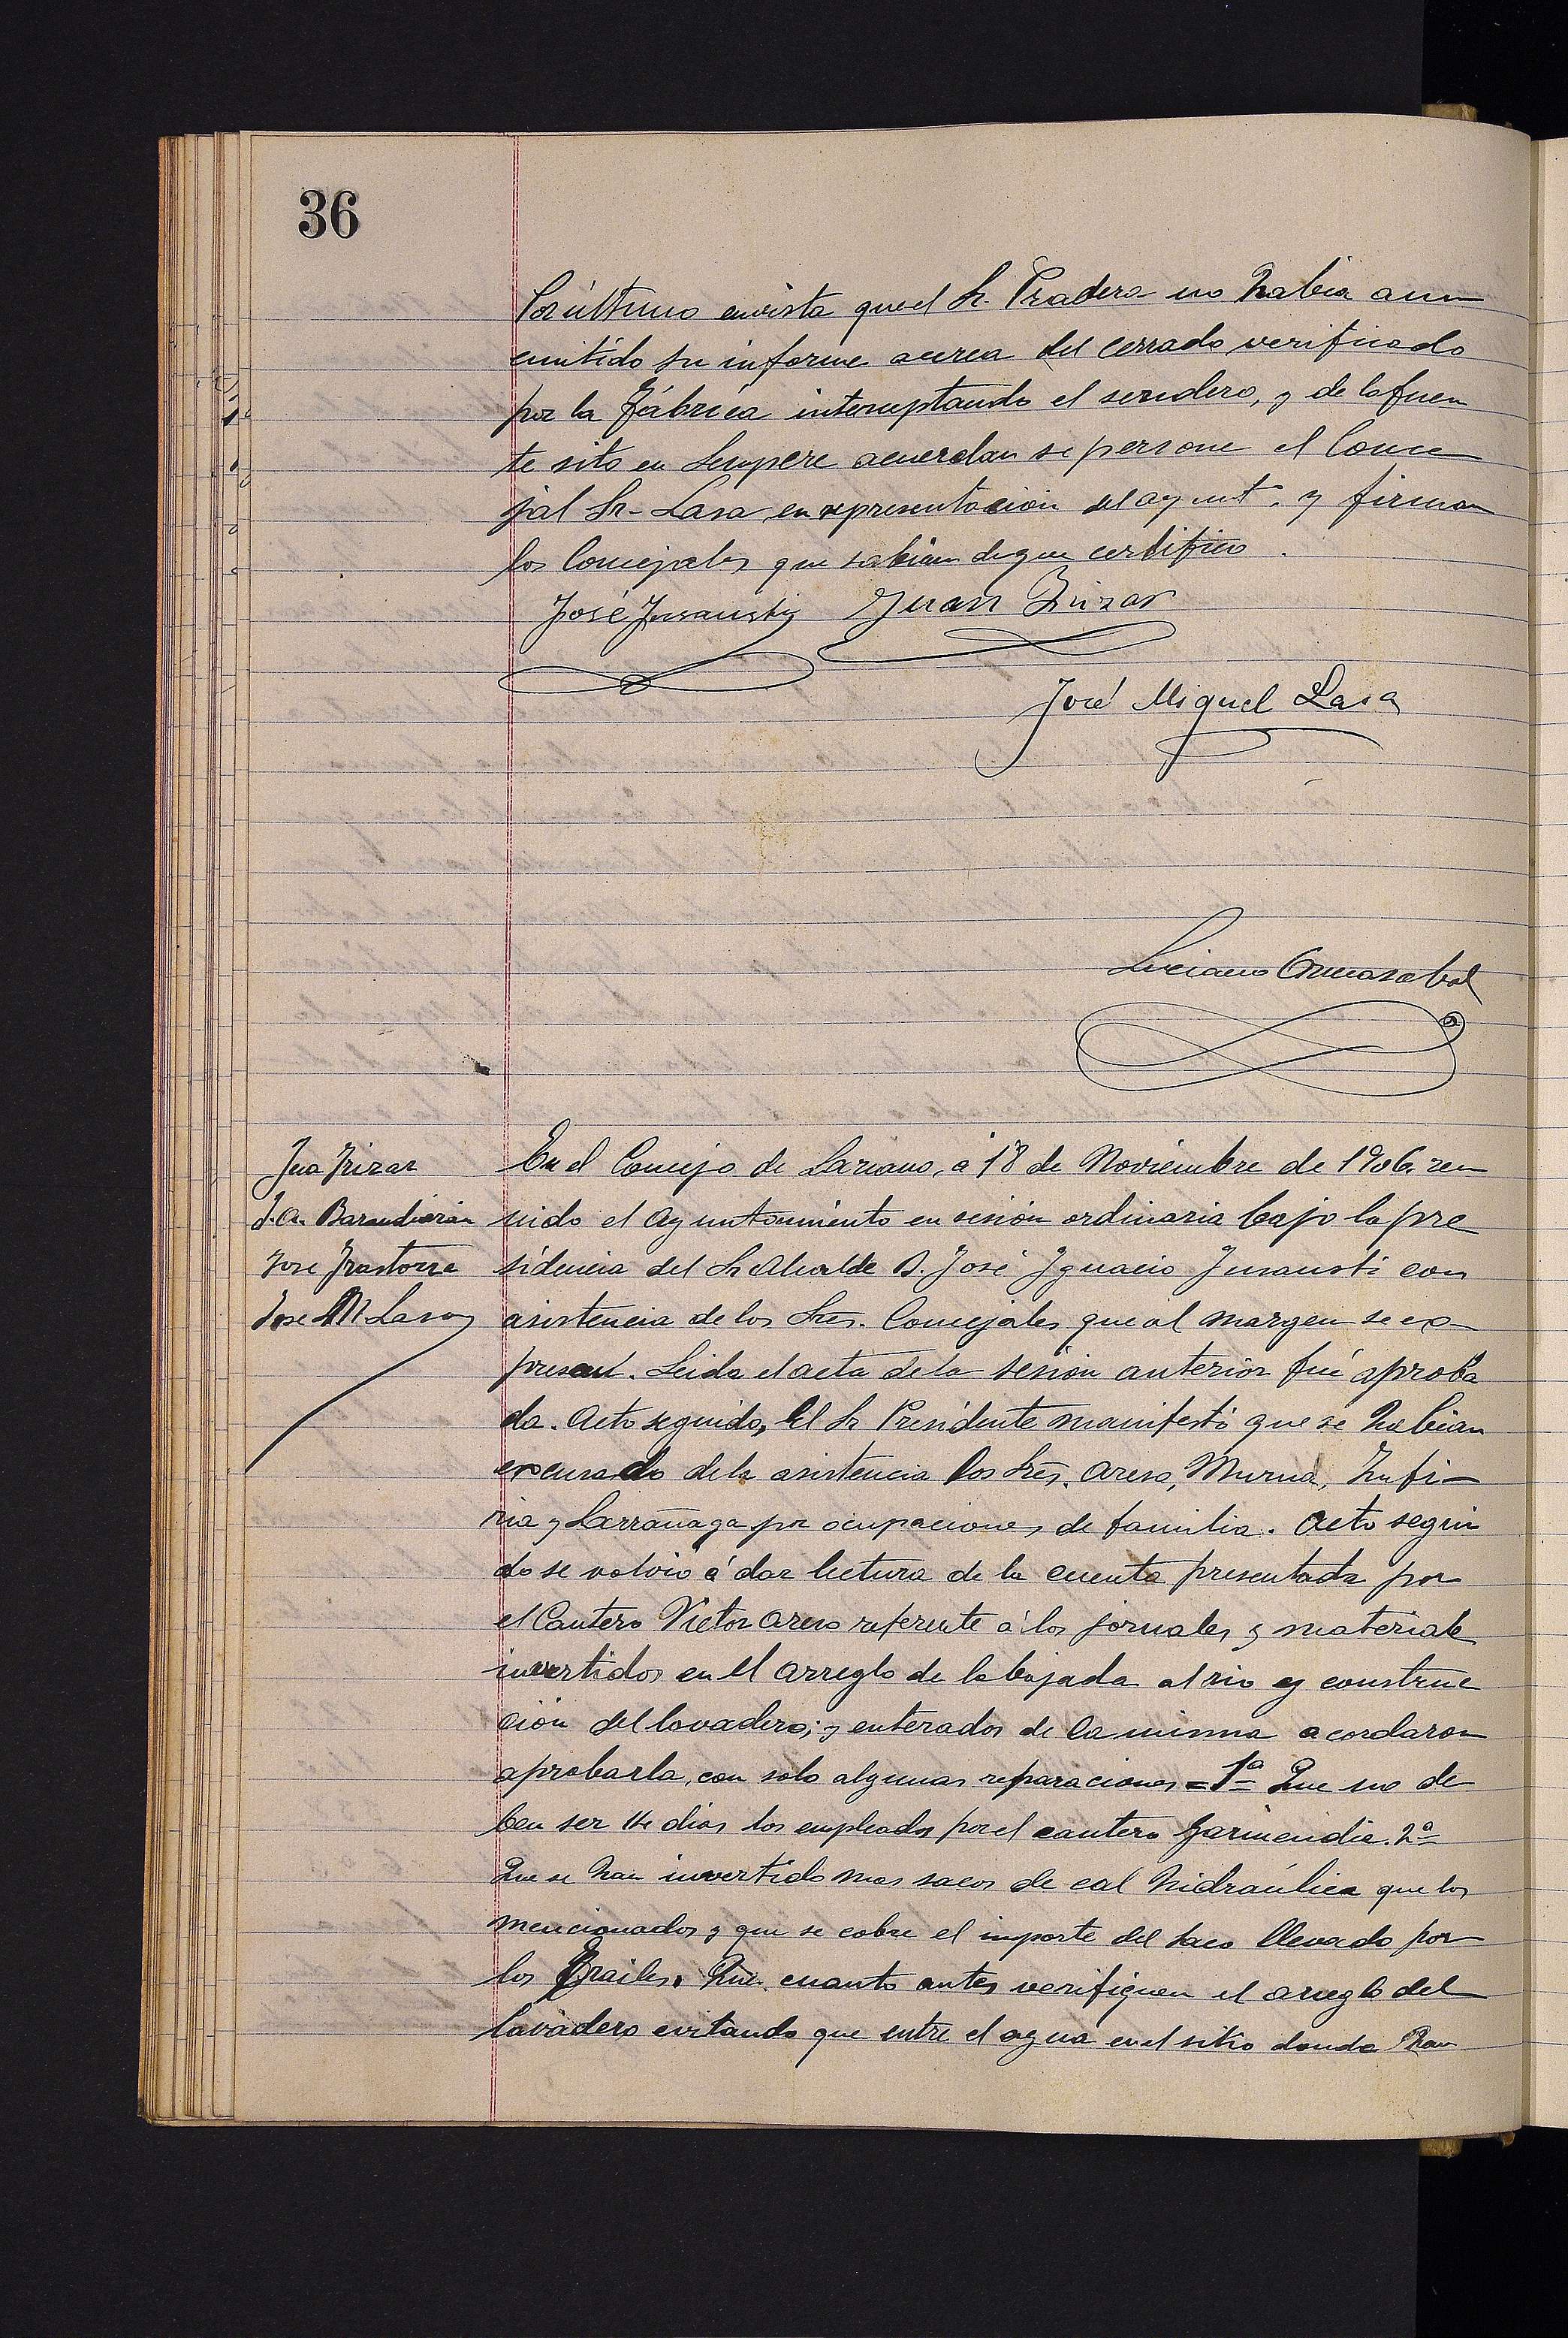 36
Por último envista que el Sr. Pradera no había aun
emitido su informe acerca del cerrado verificado
por la Fábrica interruptando el sendero, y de la fuen
te sita en Sempere acuerdan se persone el Conce
jal Sr. Lasa en representación del aynt.º y firman
los Concejales que sabían de que certifico.
José Ynsausti Juan Irizar
José Miguel Lasa
Luciano Ormazabal
Jua Irizar
J.A. Barandiarán
José Irastorza
José M Lasa
En el Concejo de Lazcano, á 18 de Noviembre de 1906, reu
nido el Ayuntamiento en sesión ordinaria bajo la pre
sidencia del Sr Alcalde D. José Ygnacio Ynsausti con
asistencia de los Sres. Concejales que al margen se ex-
presan. Leida el acta de la sesión anterior fué aproba
da. Acto seguido, el Sr Presidente manifestó que se habían
excusado de la asistencia los Sres. Areso, Murua, Zufi-
ria y Larrañaga por ocupaciones de familia. Acto segui
do se volvió á dar lectura de la cuenta presentada por
el Cantero Victor Areso referente á los jornales y materiale
invertidos en el arreglo de la bajada al rio y construc
ción del lavadero; y enterados de la misma acordaron
aprobarla, con solo algunas reparaciones = 1ª Que no de
ben ser 14 dias los empleados por el cantero Garmendia. 2ª
Que se han invertido mas sacos de cal hidraúlica que los
mencionados y que se cobre el importe del saco llevado por
los Frailes. Que cuanto antes verifiquen el arreglo del
lavadero evitando que entre el agua en el sitio donde han